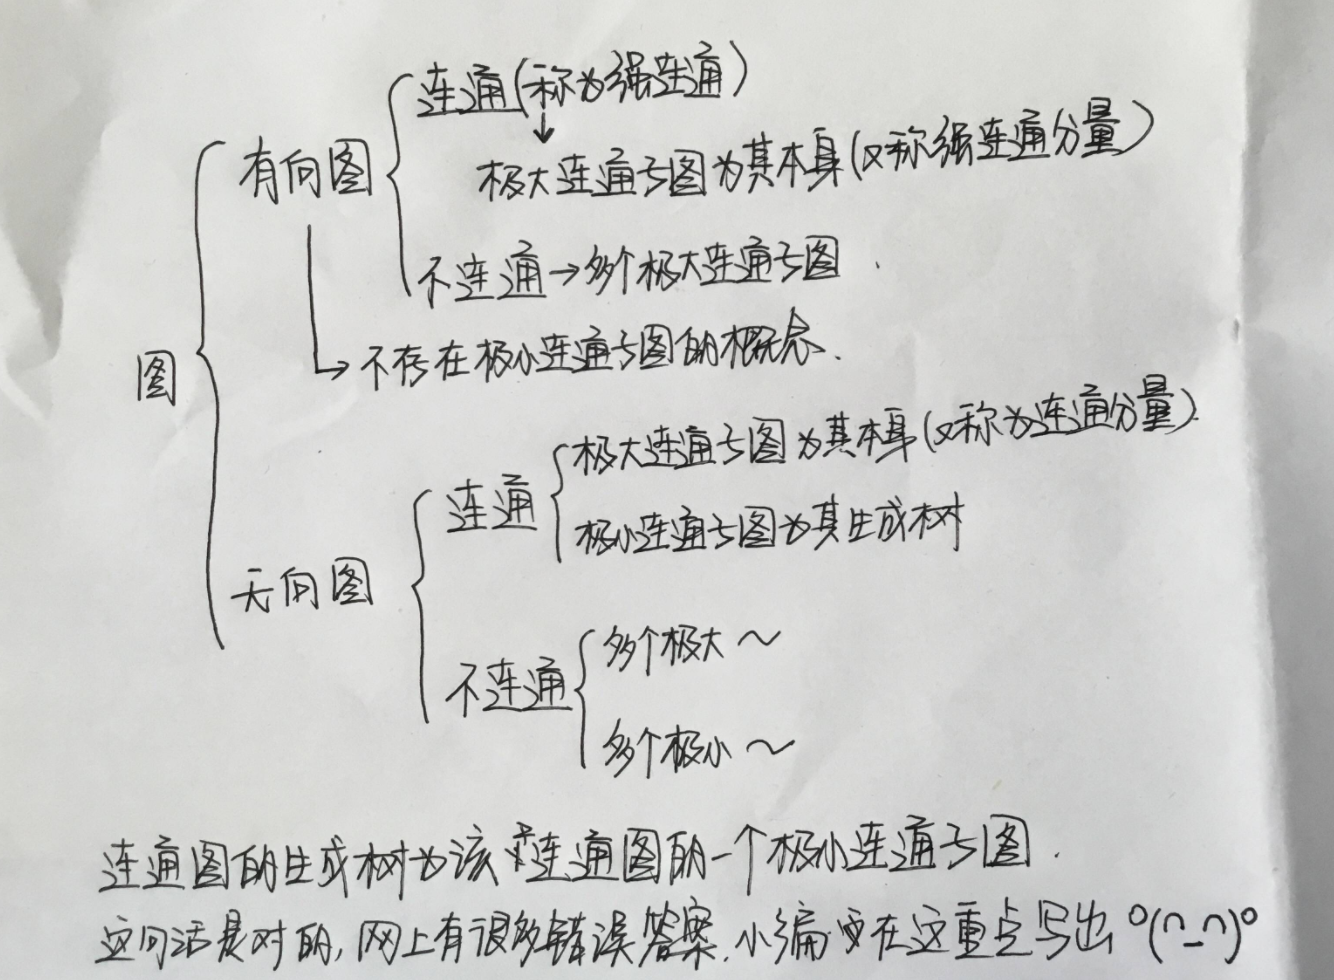 连通(称为强连通)
极大连通子图为其本身(又称强连通分量)
有向图
不连通→多个极大连通子图
不存在极小连通子图的概念.
图
极大连通子图为其本身(又称为连通分量).
连通
极小连通子图为其生成树
无向图
多个极大～
不连通
多个极小～
连通图的生成树为该连通图的一个极小连通子图.
这句话是对的,网上有很多错误答案.小编要在这重点写出 º(∩_∩)º